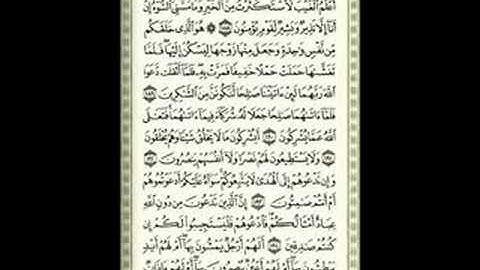 أَعْلَمُ ٱلْغَيْبَ لَٱسْتَكْثَرْتُ مِنَ ٱلْخَيْرِ وَمَا مَسَّنِىَ ٱلسُّوٓءُ إِنْ
أَنَا۠ إِلَّا نَذِيرٌ وَبَشِيرٌ لِّقَوْمٍ يُؤْمِنُونَ ۝١٨٨ هُوَ ٱلَّذِى خَلَقَكُم
مِّن نَّفْسٍ وَٰحِدَةٍ وَجَعَلَ مِنْهَا زَوْجَهَا لِيَسْكُنَ إِلَيْهَا فَلَمَّا
تَغَشَّىٰهَا حَمَلَتْ حَمْلًا خَفِيفًا فَمَرَّتْ بِهِۦ فَلَمَّآ أَثْقَلَت دَّعَوَا
ٱللَّهَ رَبَّهُمَا لَئِنْ ءَاتَيْتَنَا صَٰلِحًا لَّنَكُونَنَّ مِنَ ٱلشَّٰكِرِينَ ۝١٨٩
فَلَمَّآ ءَاتَىٰهُمَا صَٰلِحًا جَعَلَا لَهُۥ شُرَكَآءَ فِيمَآ ءَاتَىٰهُمَا فَتَعَٰلَى
ٱللَّهُ عَمَّا يُشْرِكُونَ ۝١٩٠ أَيُشْرِكُونَ مَا لَا يَخْلُقُ شَيْـًٔا وَهُمْ يُخْلَقُونَ
۝١٩١ وَلَا يَسْتَطِيعُونَ لَهُمْ نَصْرًا وَلَآ أَنفُسَهُمْ يَنصُرُونَ ۝١٩٢
وَإِن تَدْعُوهُمْ إِلَى ٱلْهُدَىٰ لَا يَتَّبِعُوكُمْ سَوَآءٌ عَلَيْكُمْ أَدَعَوْتُمُوهُمْ
أَمْ أَنتُمْ صَٰمِتُونَ ۝١٩٣ إِنَّ ٱلَّذِينَ تَدْعُونَ مِن دُونِ ٱللَّهِ
عِبَادٌ أَمْثَالُكُمْ فَٱدْعُوهُمْ فَلْيَسْتَجِيبُوا۟ لَكُمْ إِن
كُنتُمْ صَٰدِقِينَ ۝١٩٤ أَلَهُمْ أَرْجُلٌ يَمْشُونَ بِهَآ أَمْ لَهُمْ أَيْدٍ
يَبْطِشُونَ بِهَآ أَمْ لَهُمْ أَعْيُنٌ يُبْصِرُونَ بِهَآ أَمْ لَهُمْ ءَاذَانٌ